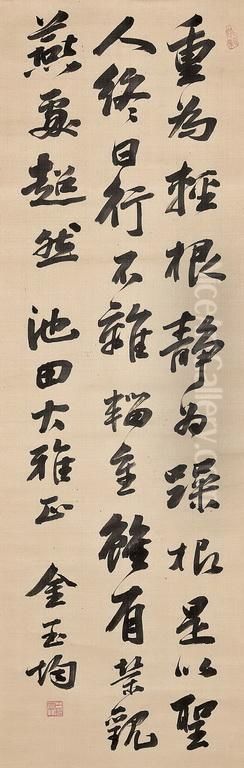 重為輕根静為躁根是以聖
人終日行不離輜重雖有榮觀
燕處超然 池田大雅正
金玉均